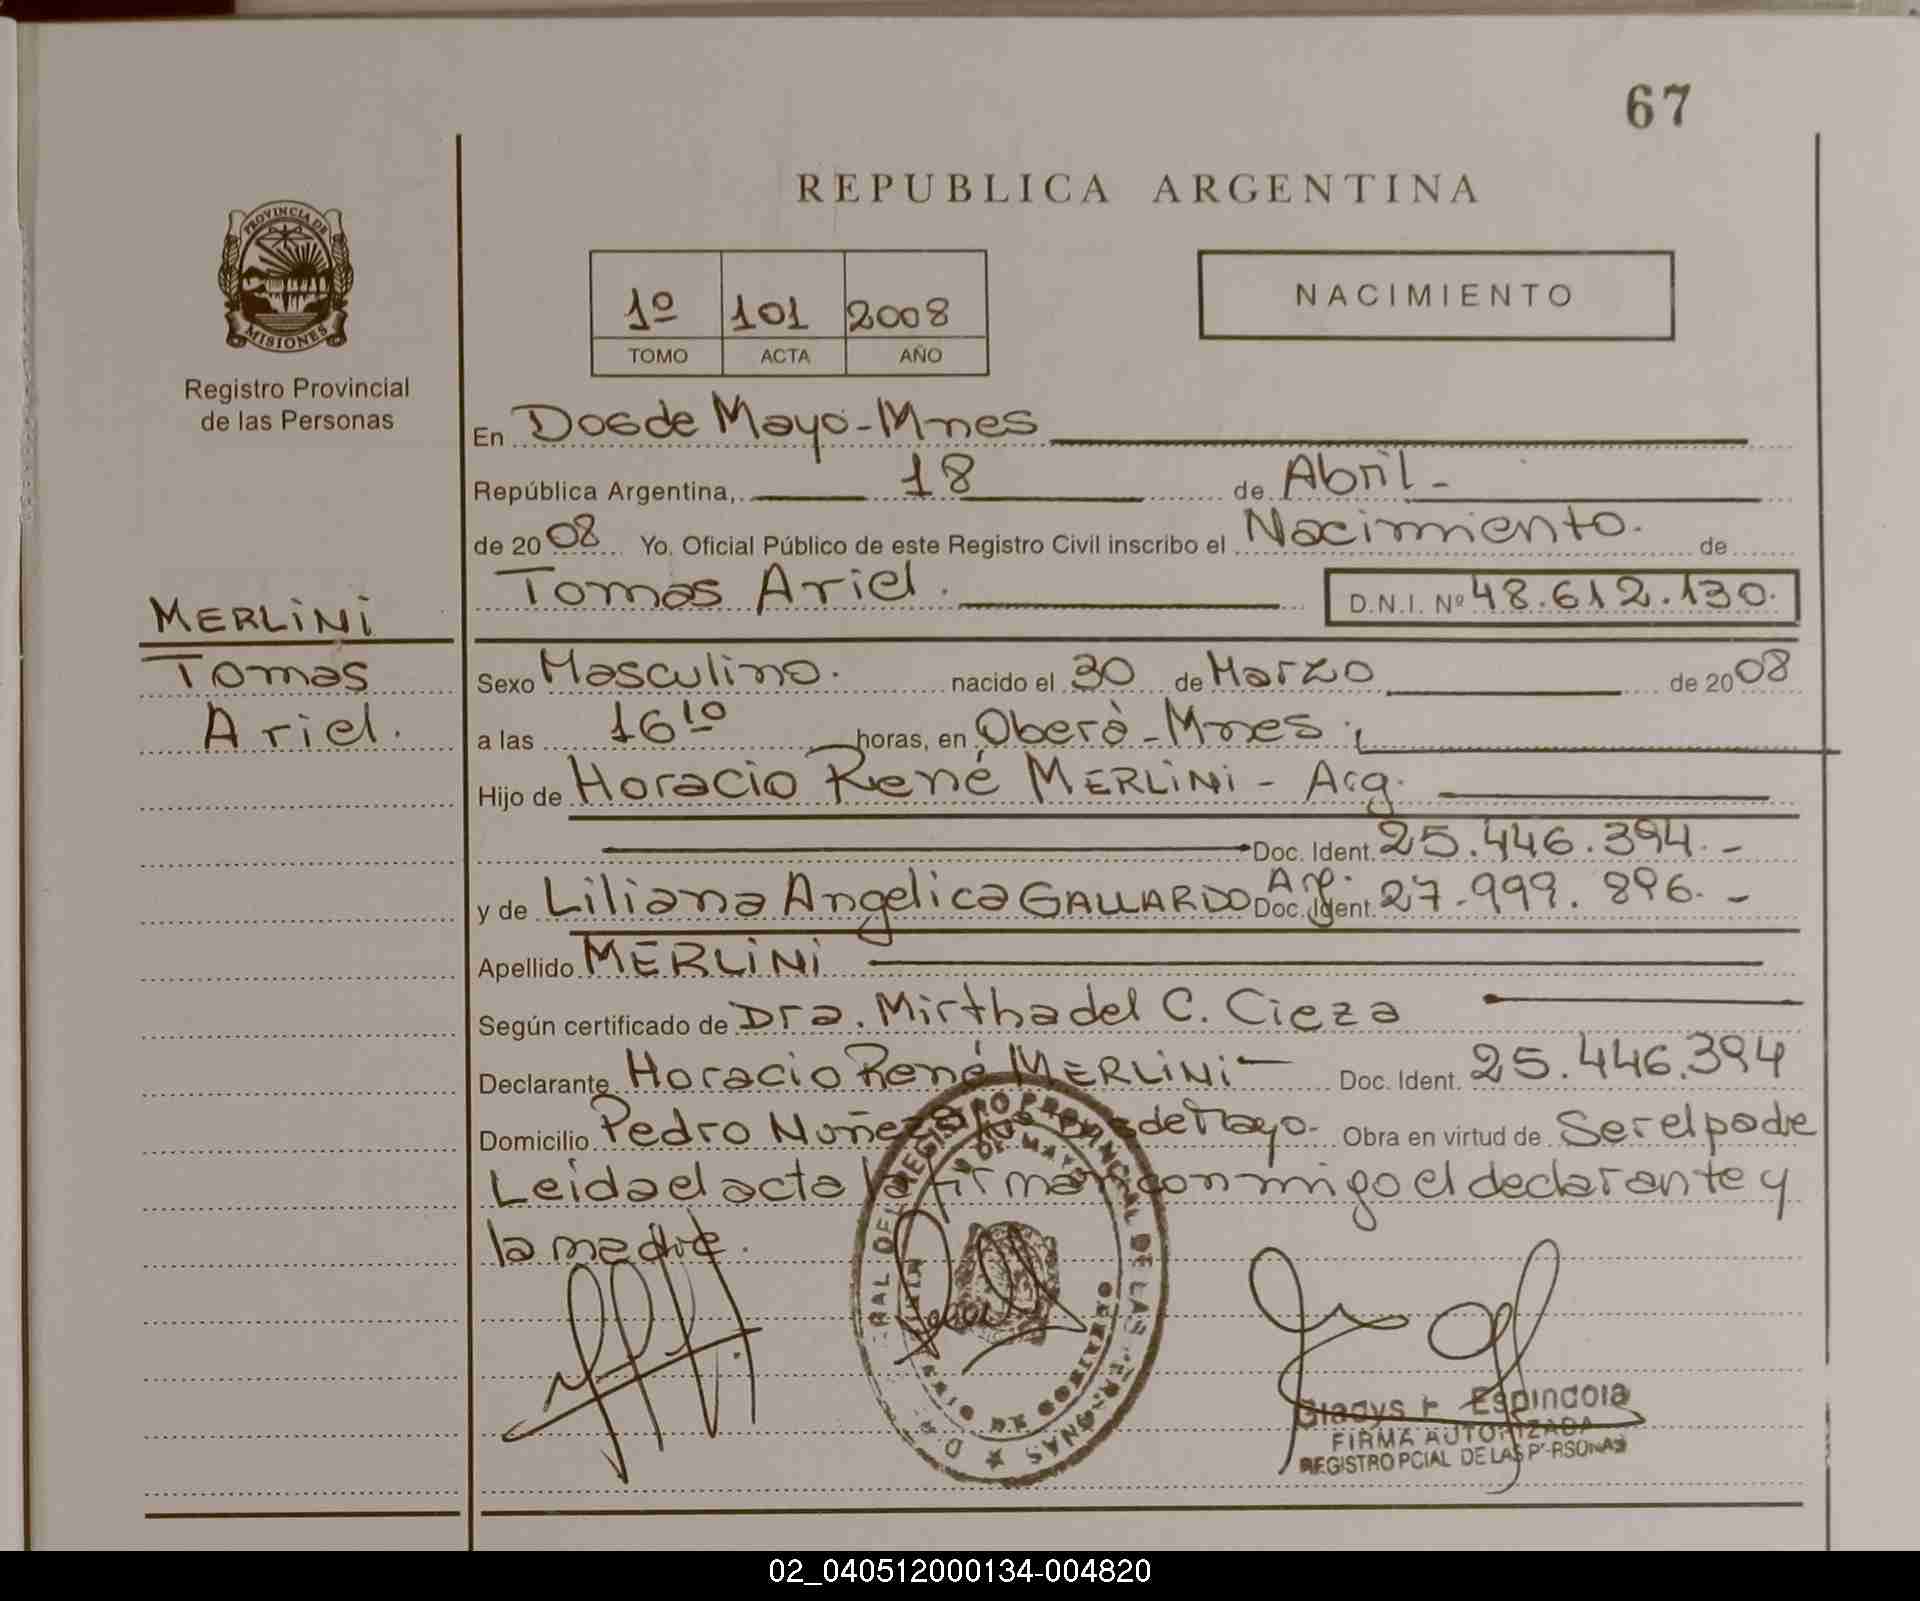 67
REPUBLICA ARGENTINA
PROVINCIA DE
MISIONES
Registro Provincial
de las Personas
1º 101 2008
TOMO ACTA AÑO
NACIMIENTO
En Dos de Mayo - Mnes
República Argentina, 18 de Abril -
de 2008 Yo. Oficial Público de este Registro Civil inscribo el Nacimiento. de
Tomas Ariel. D.N.I. Nº 48.612.130.
MERLINI
Tomas
Ariel.
Sexo Masculino. nacido el 30 de Marzo de 2008
a las 16 10 horas, en Oberà - Mnes.
Hijo de Horacio René MERLINI - Arg.
Doc. Ident. 25.446.394. -
y de Liliana Angelica GALLARDO Arg. Doc. Ident. 27.999.896. -
Apellido MERLINI
Según certificado de Dra. Mirtha del C. Cieza
Declarante Horacio René MERLINI - Doc. Ident. 25.446.394
Domicilio Pedro Nuñez Dos de Mayo. Obra en virtud de Ser el padre
Leida el acta la firman conmigo el declarante y
la madre.
REGISTRO PROVINCIAL DE LAS PERSONAS
DE MAYO
Gladys Espindola
FIRMA AUTORIZADA
REGISTRO PCIAL DE LAS PERSONAS
02_040512000134-004820